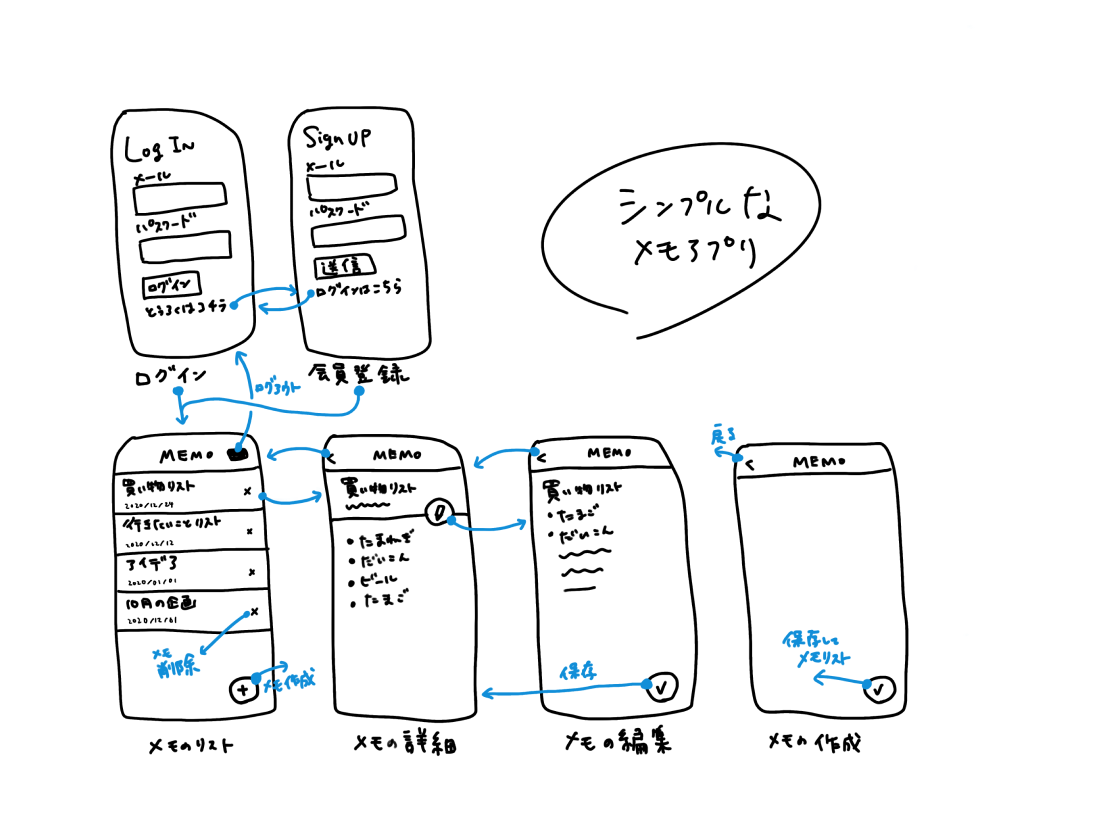 Log In
メール
パスワード
ログイン
とうろくはコチラ
ログイン
Sign UP
メール
パスワード
送信
ログインはこちら
会員登録
シンプルな
メモアプリ
ログアウト
MEMO
買い物リスト
2020/12/24
行きたいことリスト
2020/12/12
アイデア
2020/01/01
10月の企画
2020/12/01
×
×
×
×
メモ
削除
+
メモ作成
メモのリスト
<
MEMO
買い物リスト
・たまねぎ
・だいこん
・ビール
・たまご
メモの詳細
<
MEMO
買い物リスト
・たまご
・だいこん
保存
メモの編集
戻る
<
MEMO
保存して
メモリスト
メモの作成